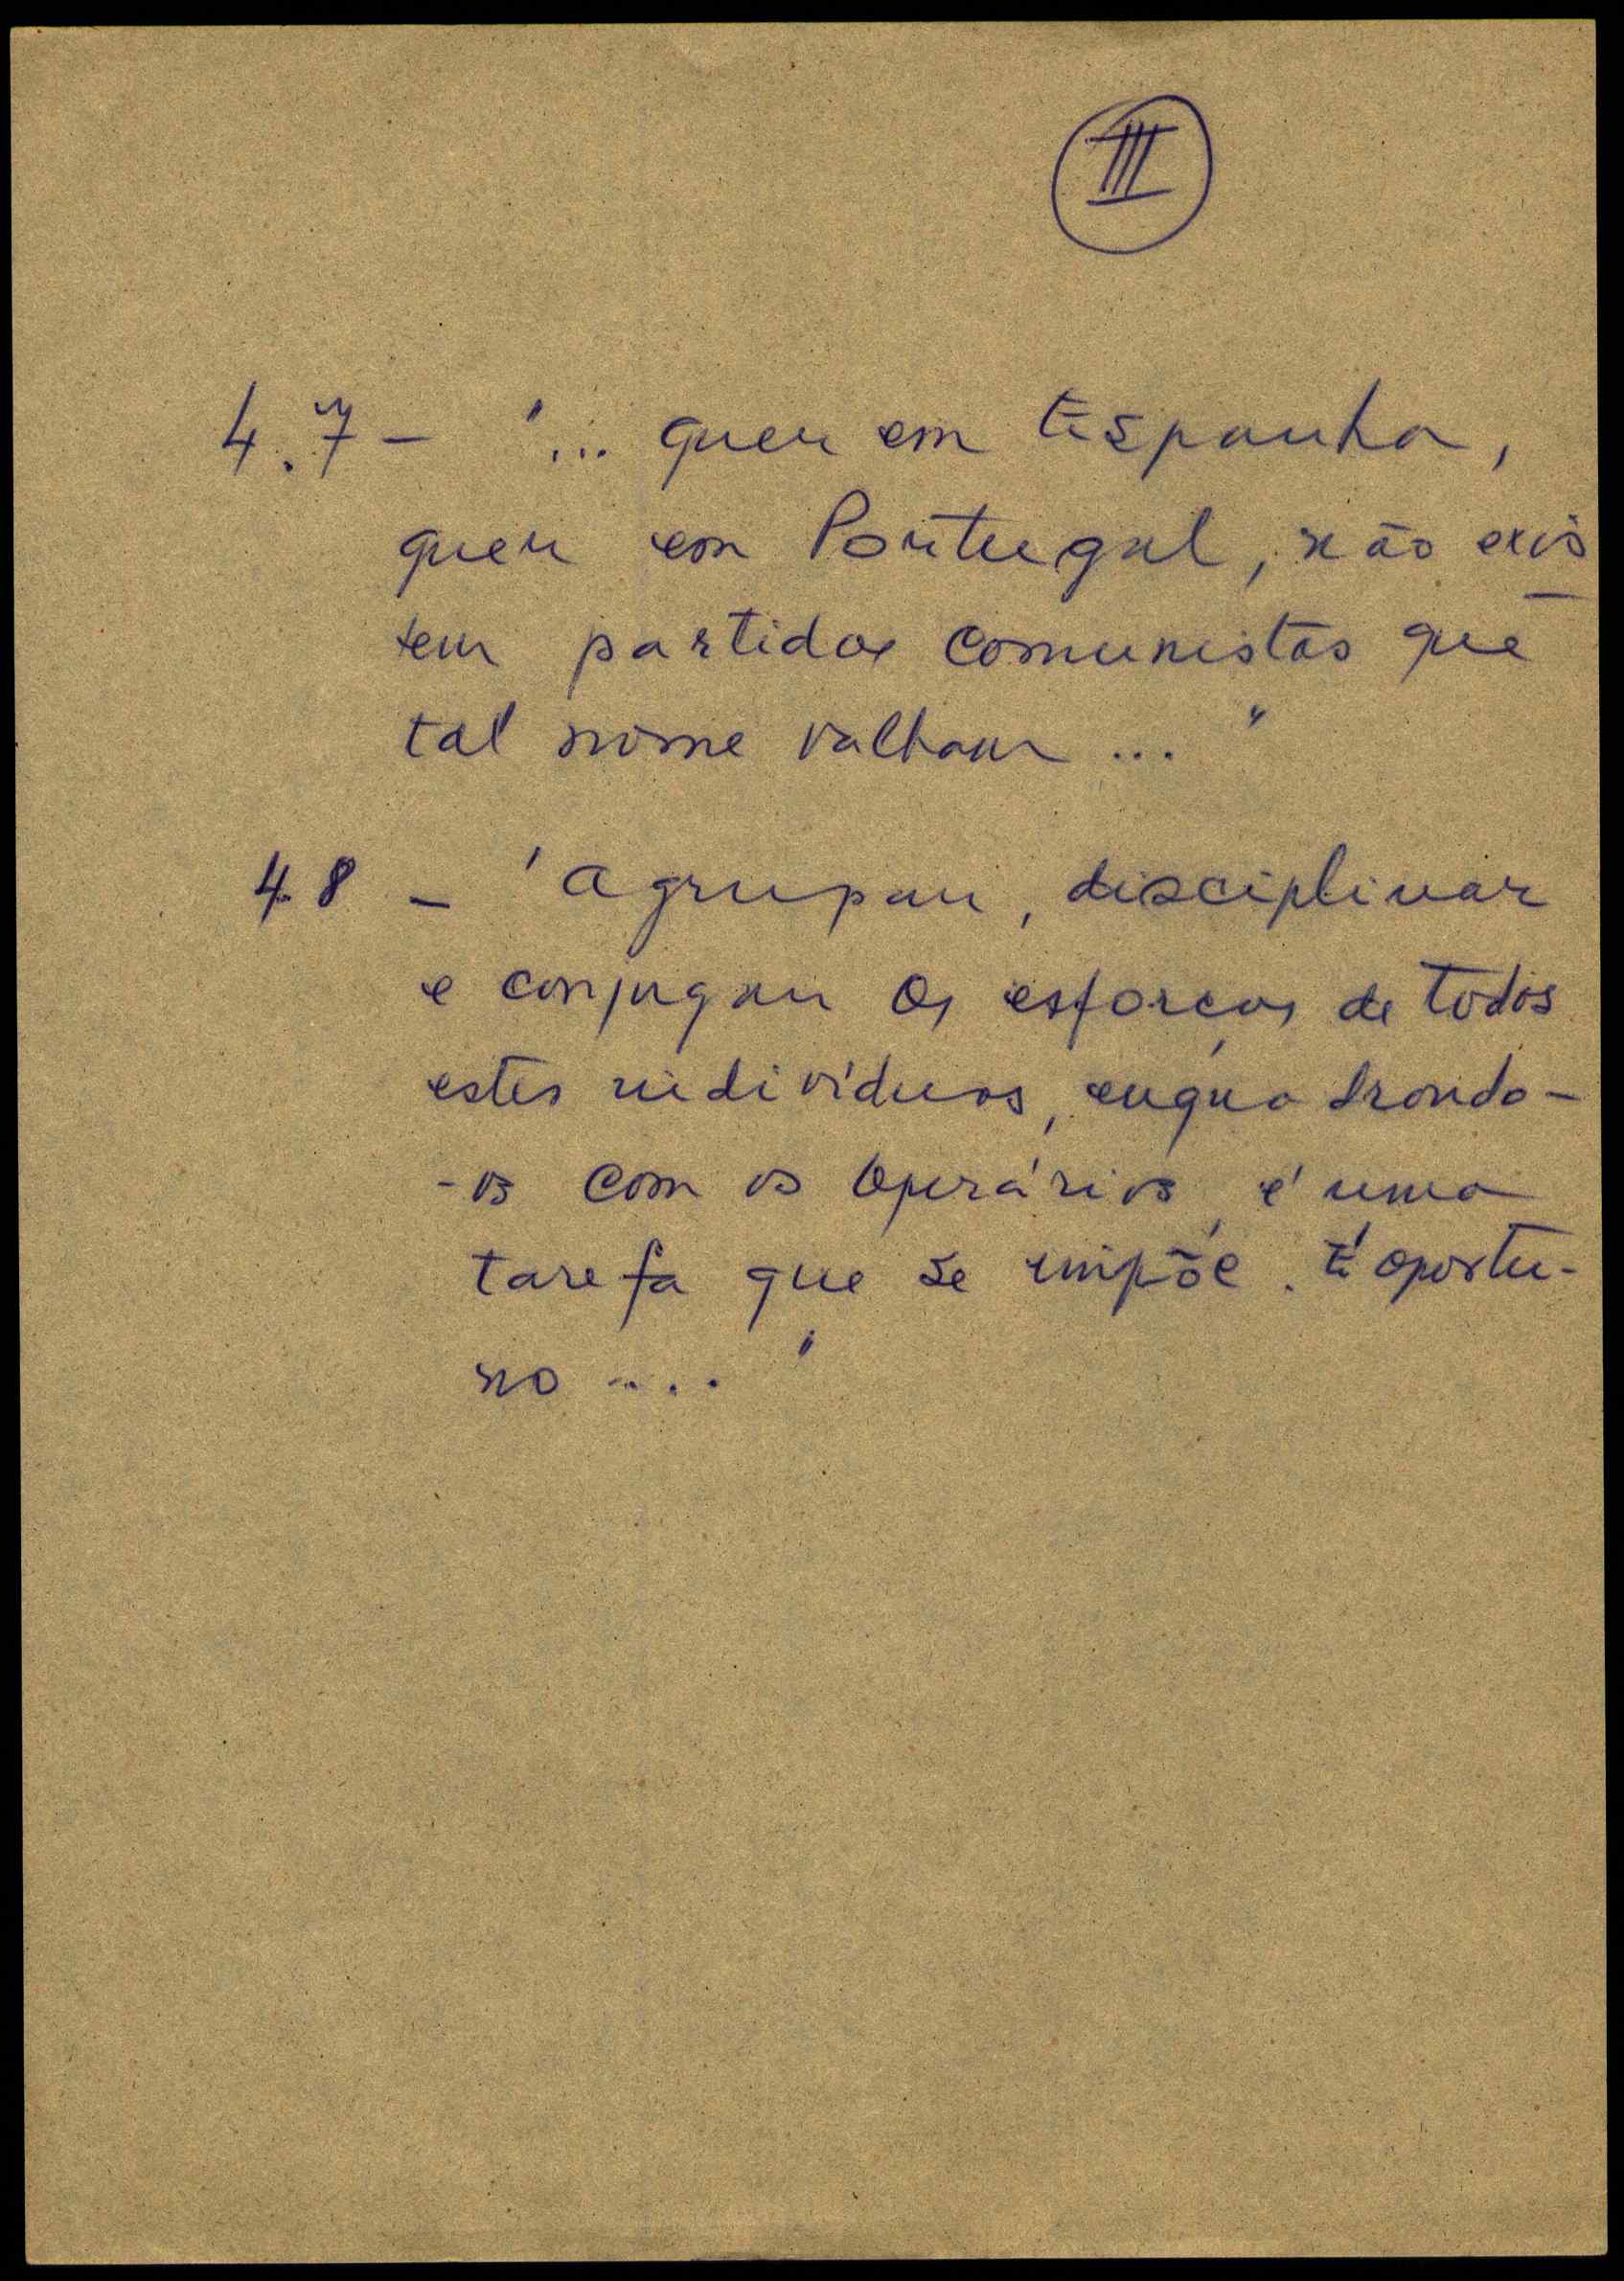 III
4.7 - "... quer em Espanha,
quer em Portugal, não exis
tem partidos comunistas que
tal nome valham ..."
4.8 - "Agrupar, disciplinar
e conjugar os esforços de todos
estes indivíduos, enquadrando-
-os com os operários, é uma
tarefa que se impõe. É oportu-
no ...."